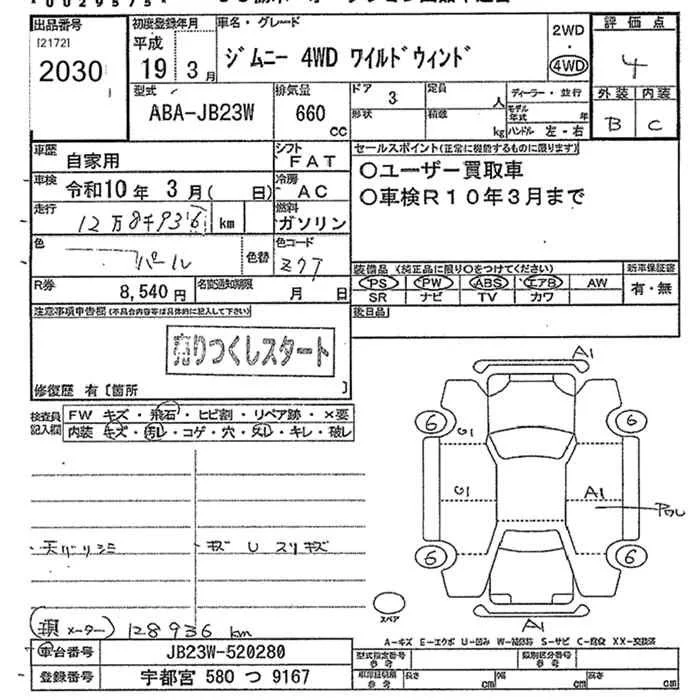 出品番号 初度登録年月 車名・グレード 2WD・4WD 評価点
[2172] 平成
2030 19年 3月 ジムニー 4WD ワイルドウィンド 4
型式 ABA-JB23W 排気量 660 CC ドア 3 定員 人 ディーラー・並行 外装 内装
形状 積載 kg モデル年式 年 ハンドル 左・右 B C
車歴 自家用 シフト FAT セールスポイント(正常に機能するものに限ります)
〇ユーザー買取車
車検 令和10年 3月( 日) 冷房 AC 〇車検R10年3月まで
走行 12万8千936 km 燃料 ガソリン
色 パール 色替 色コード Z7T
装備品 (純正品に限り〇をつけてください) 新車保証書
PS PW ABS エアB AW 有・無
SR ナビ TV カワ
R券 8,540円 名変通知期限 月 日 後日品
注意事項申告欄(不具合内容等は具体的に記入して下さい)
売りつくしスタート
修復歴 有〔箇所 〕
検査員記入欄 FW キズ・飛石・ヒビ割・リペア跡・×要
内装 キズ・汚レ・コゲ・穴・スレ・キレ・破レ
A1
6 6
G1
G1 A1
6 6
天バリシミ キズ U スリキズ
スペア
A1
(現メーター) 128936 km
A-キズ E-エクボ U-凹み W-補修跡 S-サビ C-腐食 XX-交換済
車台番号 JB23W-520280 型式指定番号 参考 類別区分番号 参考
登録番号 宇都宮 580 つ 9167 長さ cm 幅 cm 高さ cm